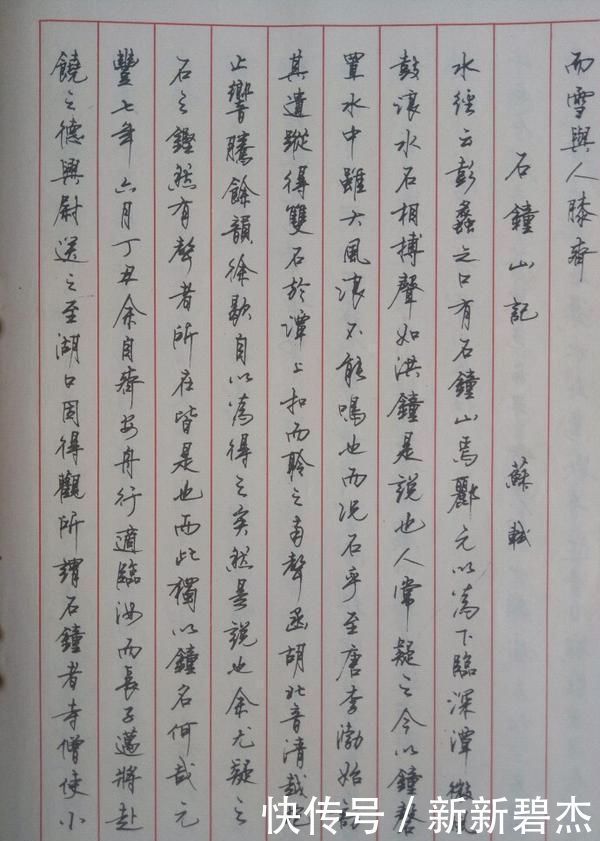 而雪與人膝齊
石鐘山記 蘇軾
水經云彭蠡之口有石鐘山焉酈元以為下臨深潭微風
鼓浪水石相搏聲如洪鐘是說也人常疑之今以鐘磬
置水中雖大風浪不能鳴也而況石乎至唐李渤始訪
其遺蹤得雙石於潭上扣而聆之南聲函胡北音清越枹
止響騰餘韻徐歇自以為得之矣然是說也余尤疑之
石之鏗然有聲者所在皆是也而此獨以鐘名何哉元
豐七年六月丁丑余自齊安舟行適臨汝而長子邁將赴
饒之德興尉送之至湖口因得觀所謂石鐘者寺僧使小
快传号／新新碧杰